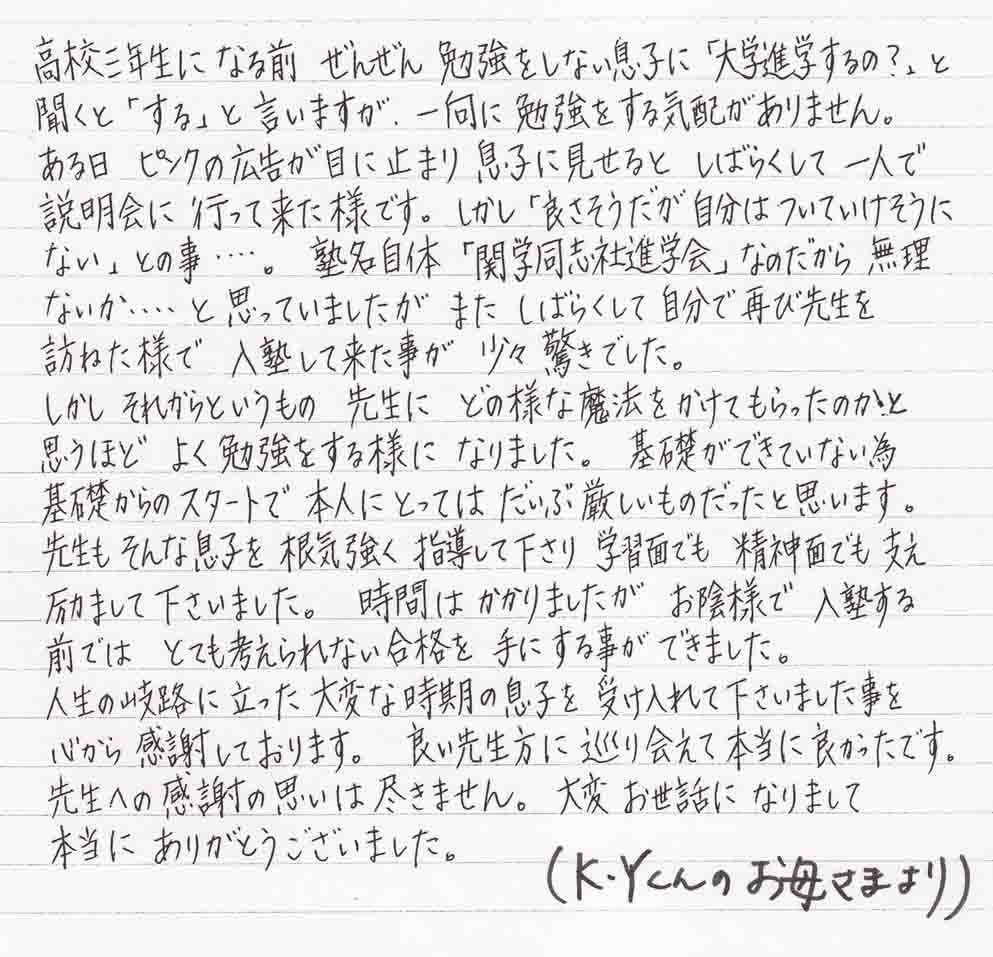 高校三年生に なる前 ぜんぜん 勉強をしない息子に「大学進学するの?」と
聞くと「する」と言いますが、一向に 勉強をする気配がありません。
ある日 ピンクの広告が目に止まり 息子に見せると しばらくして 一人で
説明会に 行って来た様です。しかし「良さそうだが 自分は ついていけそうに
ない」との事‥‥。 塾名自体「関学同志社進学会」なのだから 無理
ないか‥‥と思っていましたが また しばらくして 自分で再び先生を
訪ねた様で 入塾して来た事が 少々 驚きでした。
しかし それからというもの 先生に どの様な魔法を かけてもらったのかと
思うほど よく 勉強をする様に なりました。 基礎ができていない為
基礎からのスタートで 本人にとっては だいぶ厳しいものだったと思います。
先生も そんな息子を 根気強く 指導して下さり 学習面でも 精神面でも 支え
励まして下さいました。 時間は かかりましたが お陰様で 入塾する
前では とても考えられない合格を 手にする事が できました。
人生の岐路に立った 大変な時期の息子を 受け入れて下さいました事を
心から 感謝しております。 良い先生方に 巡り会えて本当に良かったです。
先生への感謝の思いは 尽きません。 大変 お世話に なりまして
本当に ありがとうございました。
(K・Yくんの お母さまより)